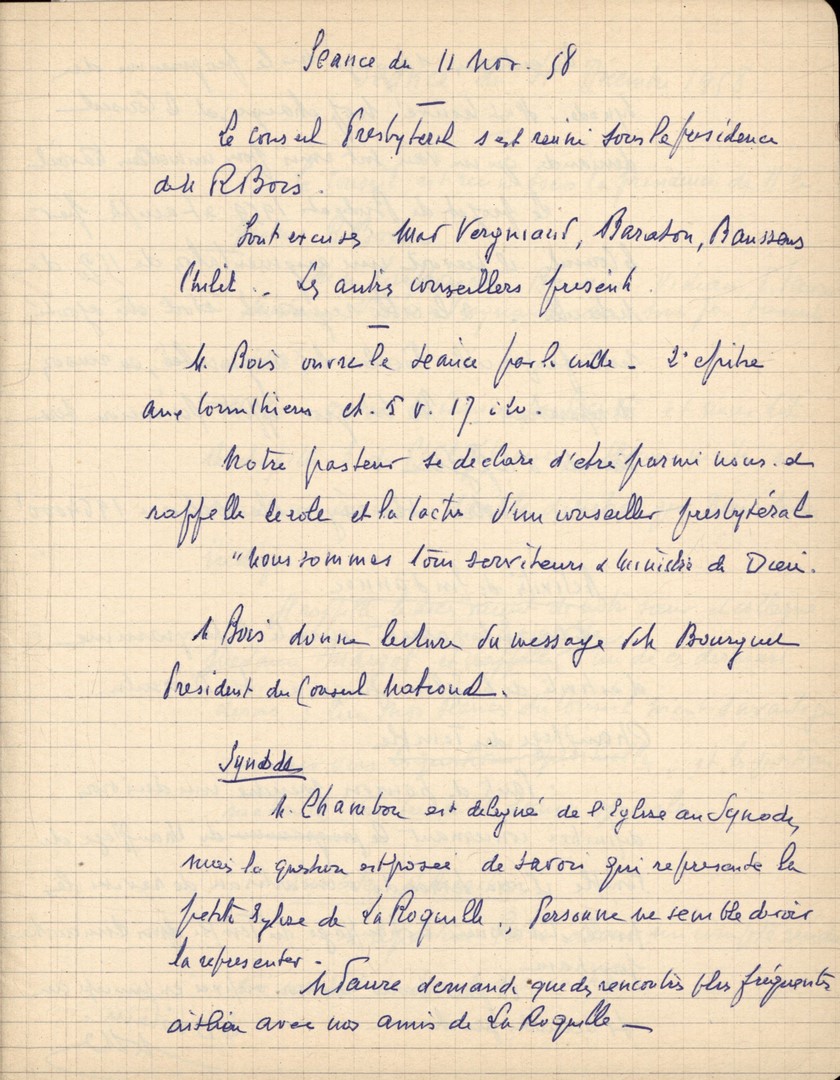 Séance du 11 Nov. 58
Le conseil Presbyteral s'est reuni sous la présidence
de M R Bois.
Sont excusés MM Vergniaud, Baraton, Baussens
Les autres conseillers présents.
M. Bois ouvre la séance par le culte - 2e épitre
aux Corinthiens ch. 5 v. 17 à 20.
Notre pasteur se déclare d'être parmi nous. et
rappelle le role et la tache d'un conseiller presbytéral
"Nous sommes tous serviteurs & ministres de Dieu.
M Bois donne lecture du message de M Bourguet
President du Conseil National.
Synode
M. Chambon est délégué de l'Eglise au Synode,
mais la question est posée de savoir qui représente la
petite Eglise de La Roquille., Personne ne semble devoir
la representer.
M Faure demande que des rencontres plus fréquentes
aient lieu avec nos amis de La Roquille -